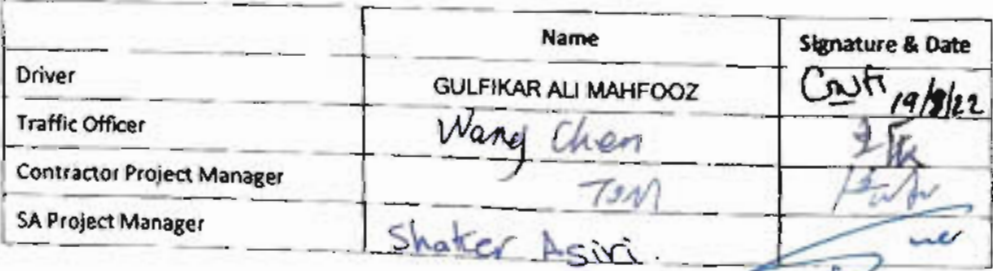 Name Signature & Date
Driver GULFIKAR ALI MAHFOOZ 19/8/22
Traffic Officer Wang Chen
Contractor Project Manager
SA Project Manager Shaker Asiri.